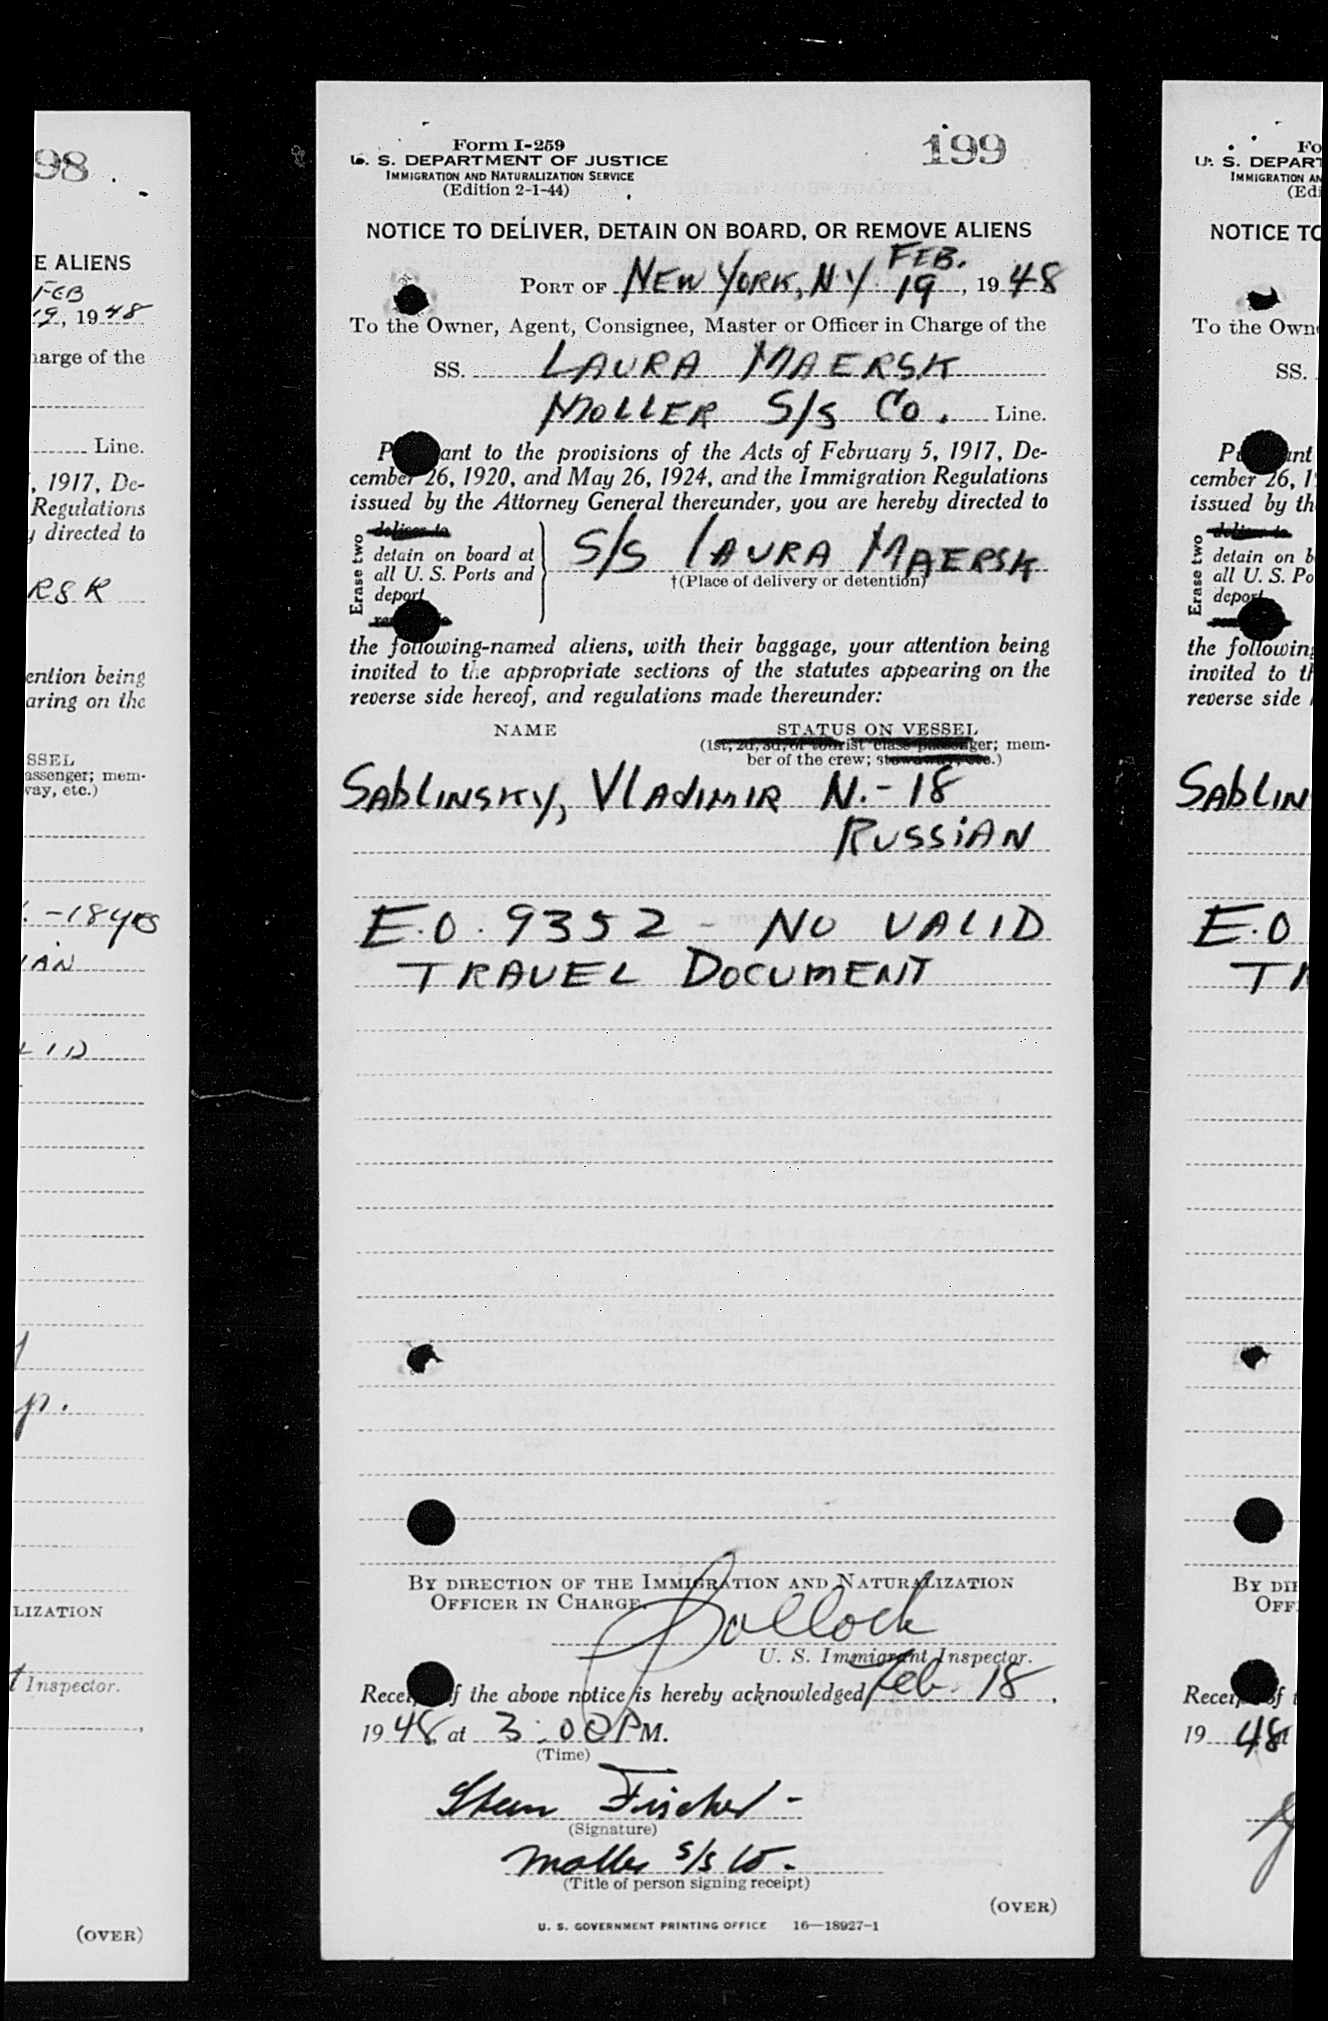 98
E ALIENS
FEB
19, 1948
harge of the
Line.
, 1917, De-
Regulations
y directed to
RSK
ention being
aring on the
SSEL
assenger; mem-
way, etc.)
. -18 yrs
IAN
LID
p.
LIZATION
t Inspector.
(OVER)
Form I-259
U. S. DEPARTMENT OF JUSTICE
IMMIGRATION AND NATURALIZATION SERVICE
(Edition 2-1-44)
199
NOTICE TO DELIVER, DETAIN ON BOARD, OR REMOVE ALIENS
PORT OF NEW YORK, N.Y. FEB. 19, 1948
To the Owner, Agent, Consignee, Master or Officer in Charge of the
SS. LAURA MAERSK
MOLLER S/S CO. Line.
P ant to the provisions of the Acts of February 5, 1917, De-
cember 26, 1920, and May 26, 1924, and the Immigration Regulations
issued by the Attorney General thereunder, you are hereby directed to
Erase two
deliver to
detain on board at
all U. S. Ports and
deport
S/S LAURA MAERSK
†(Place of delivery or detention)
the following-named aliens, with their baggage, your attention being
invited to the appropriate sections of the statutes appearing on the
reverse side hereof, and regulations made thereunder:
NAME STATUS ON VESSEL
(1st, 2d, 3d, or tourist class passenger; mem-
ber of the crew; stowaway, etc.)
SABLINSKY, VLADIMIR N. - 18
RUSSIAN
E.O. 9352 - NO VALID
TRAVEL DOCUMENT
BY DIRECTION OF THE IMMIGRATION AND NATURALIZATION
OFFICER IN CHARGE.
U. S. Immigrant Inspector.
Recei f the above notice is hereby acknowledged Feb. 18,
1948 at 3:00 PM.
(Time)
Fischer -
(Signature)
Moller S/S Co.
(Title of person signing receipt)
(OVER)
U. S. GOVERNMENT PRINTING OFFICE 16—18927-1
Fo
U. S. DEPART
IMMIGRATION AN
(Edi
NOTICE TO
To the Own
SS.
P ant
cember 26, 1
issued by th
Erase two
deliver to
detain on b
all U. S. Po
deport
the following
invited to th
reverse side
SABLIN
E.O
TR
BY DI
OFF
Recei of
19 48